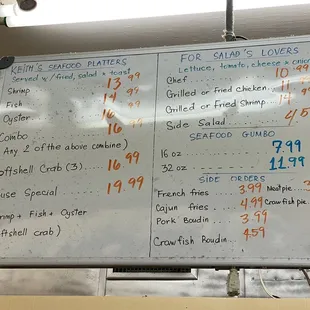 KEITH'S SEAFOOD PLATTERS
Served w/fried, salad & toast
Shrimp 13 99
Fish 14 99
Oyster 16 99
Combo 16 99
Any 2 of the above combine)
Softshell Crab (3) 16 99
use Special 19.99
rimp + Fish + Oyster
oftshell crab)
FOR SALAD'S LOVERS
Lettuce, tomato, cheese & onion
Chef 10 99
Grilled or Fried Chicken 11
Grilled or Fried Shrimp 14 99
Side Salad 4 5
SEAFOOD GUMBO
16 oz 7.99
32 oz 11.99
SIDE ORDERS
French fries 3.99 Meat pie
Cajun fries 4.99 Crawfish pie
Pork Boudin 3.99
Crawfish Boudin 4.59